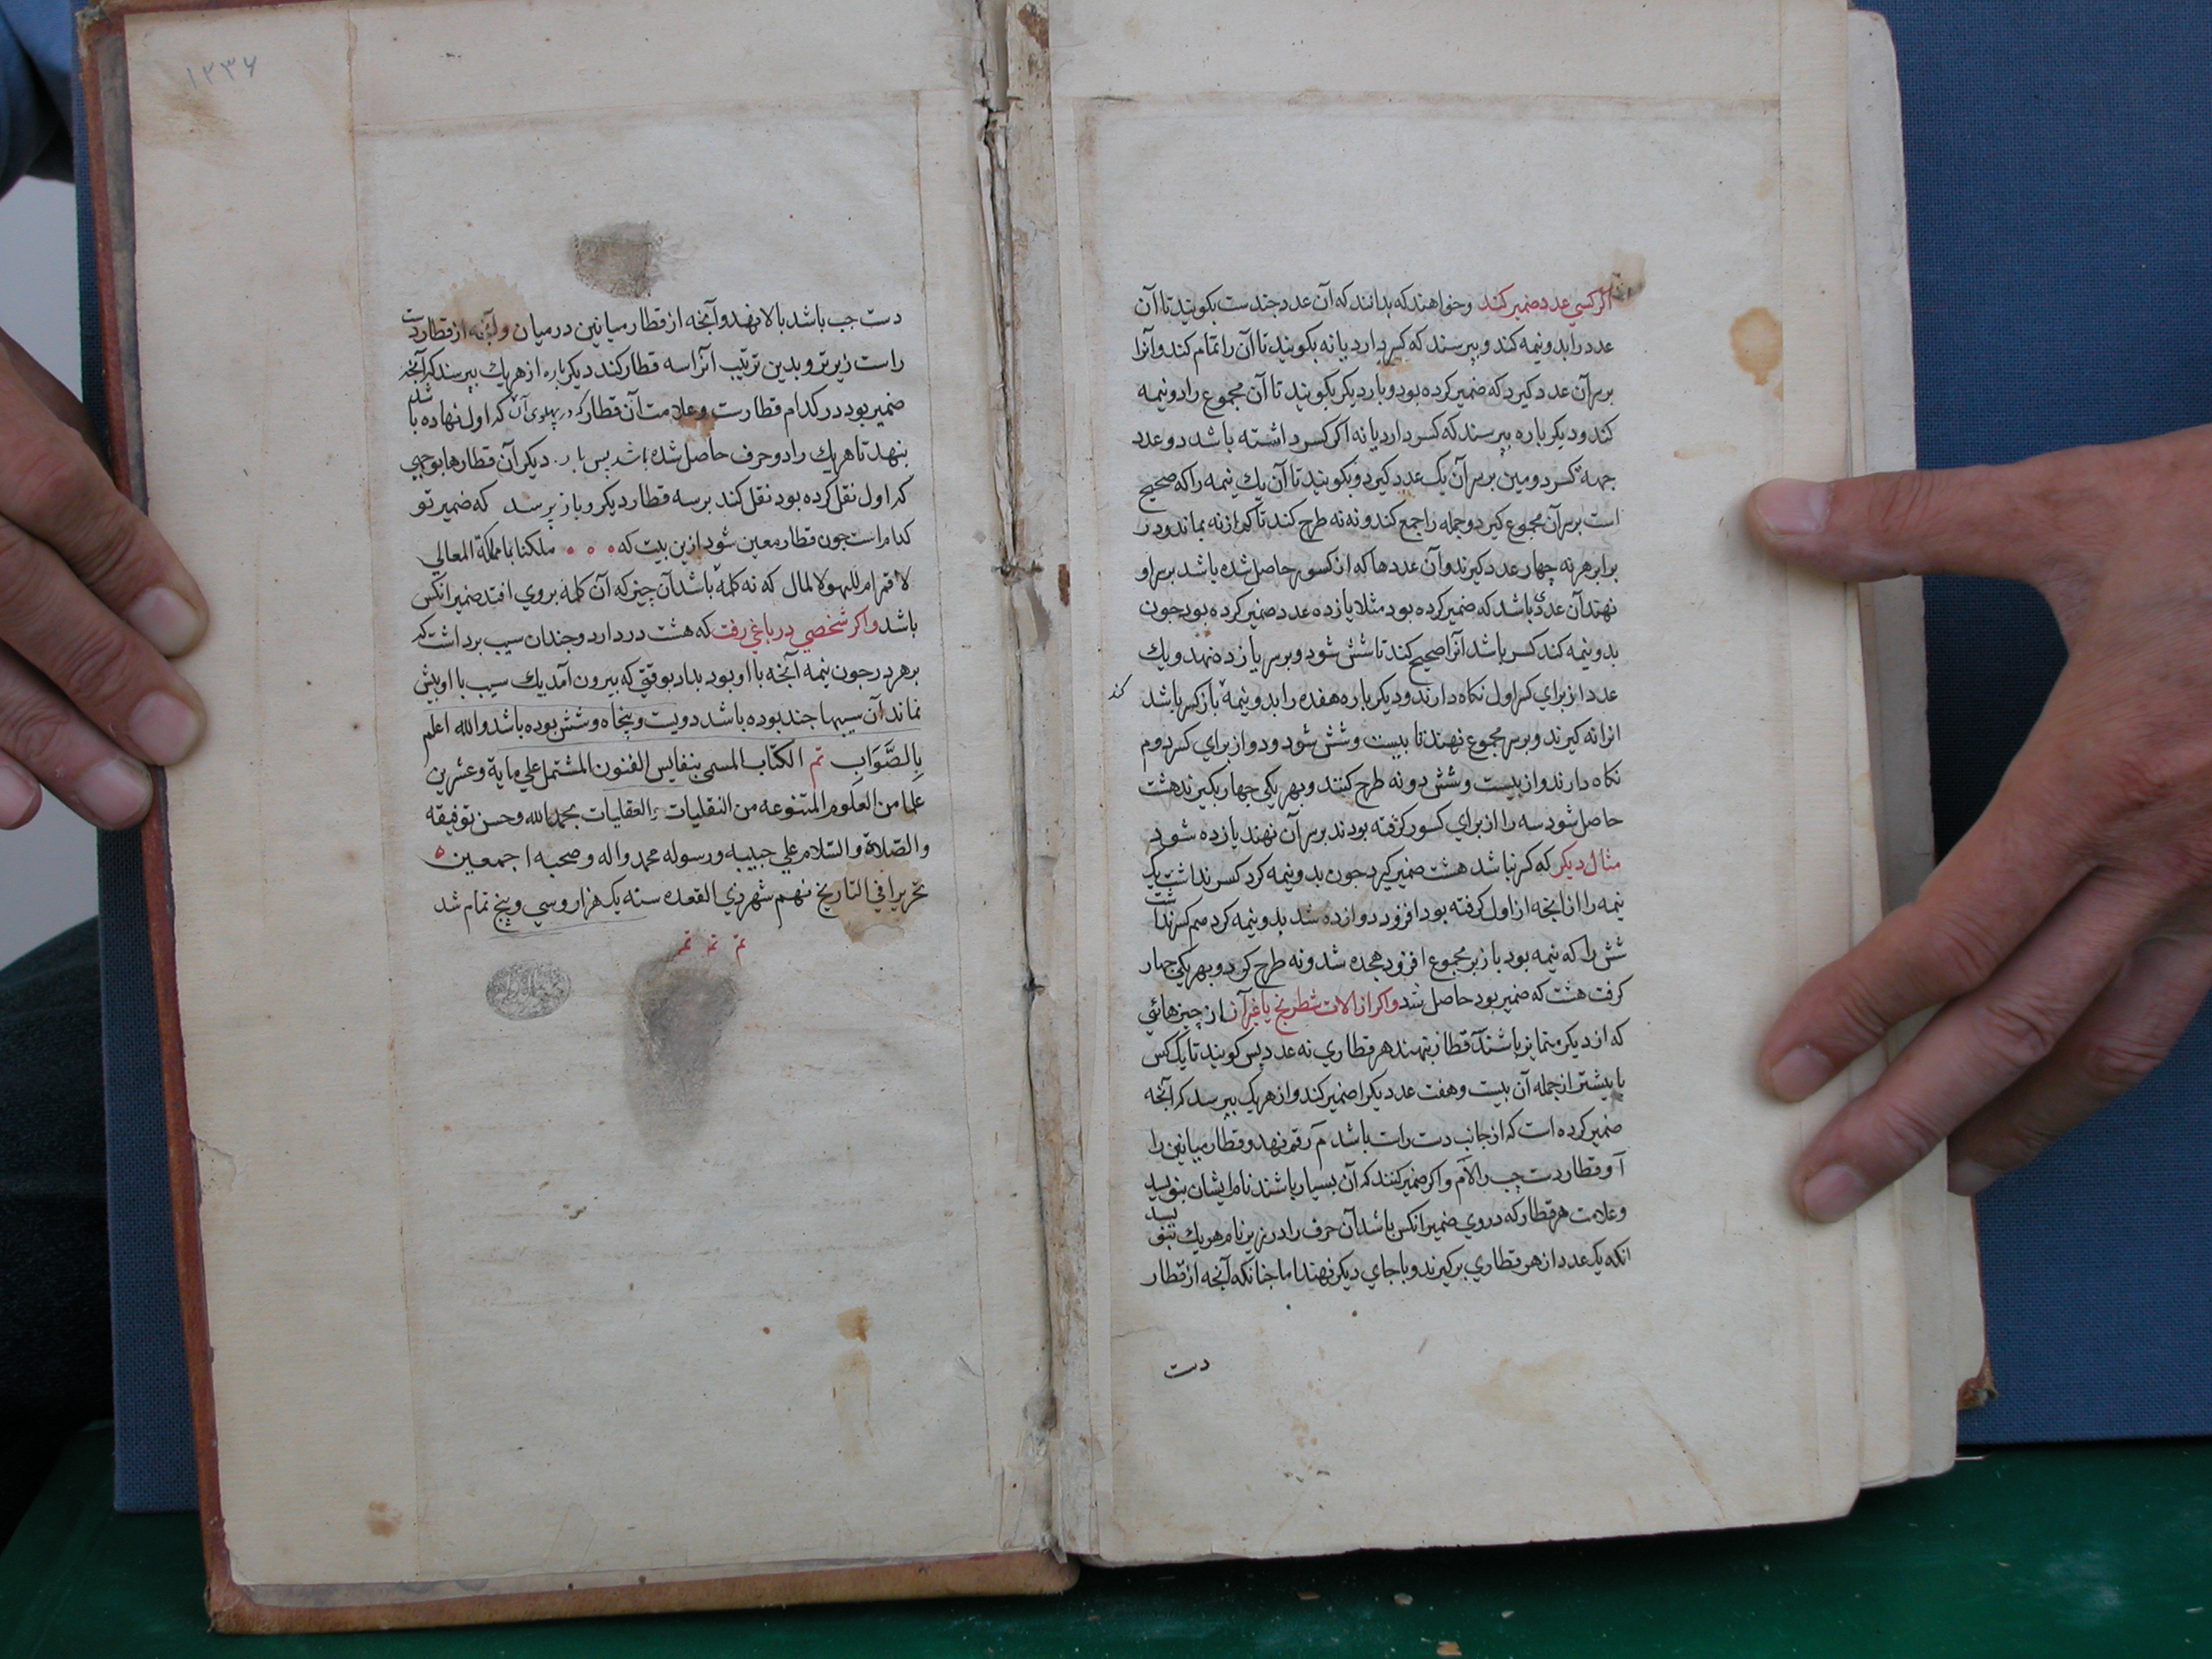 اكر كسي عدد ضمير كند وخواهند كه بدانند كه آن عدد جندست بكويند تا آن
عدد را بدو نيمه كند و بپرسند كه كسر دارد يا نه بكويند تا آن را تمام كند وآنرا
بر سر آن عدد كيرد كه ضمير كرده بود و بار ديكر بكويند تا آن مجموع را دو نيمه
كند و ديكر باره بپرسند كه كسر دارد يا نه اكر كسر داشته باشد دو عدد
جهة كسر دومين بر سر آن يك عدد كيرد و بكويند تا آن يك نيمه را كه صحيح
است بر سر آن مجموع كيرد و جمله را جمع كند و نه نه طرح كند تا كم از نه بماند و در
برابر هر نه چهار عدد كيرند وآن عددها كه از كسور حاصل شده باشد بر سر او
نهند آن عددى باشد كه ضمير كرده بود مثلا يازده عدد ضمير كرده بود جون
بدو نيمه كند كسر باشد آنرا صحيح كند تا شش شود و بر سر يازده نهد و يك
عدد از براي كسر اول نكاه دارند و ديكر باره هفده را بدو نيمه باز كسر باشد
كند
انرا نه كيرند و بر سر مجموع نهند تا بيست وشش شود و دو از براي كسر دوم
نكاه دارند و از بيست و شش دو نه طرح كنند و بهر يكي جهار بكيرند هشت
حاصل شود سه را از براي كسور كرفته بودند بر سر آن نهند يازده شود
مثال ديكر كه كسر نباشد هشت ضمير كيرد جون بدو نيمه كرد كسر نداشت يك
نيمه را از انچه از اول كرفته بود افزود دوازده شد بدو نيمه كرد هم كسر نداشت
شش را كه نيمه بود باز بر مجموع افزود هجده شد و نه طرح كرد و بهر يكي جهار
كرفت هشت كه ضمير بود حاصل شد واكر از الات شطرنج يا غير آن از چيزهائي
كه از ديكر متمايز باشند آ قطار بنهند هر قطاري نه عدد پس كويند تا يك كس
يا بيشتر از جمله آن بيست و هفت عدد يكرا ضمير كند و از هر يك بپرسد كه آنچه
ضمير كرده است كه از جانب دست راست باشد م رقم نهد و قطار ميانين را
آ و قطار دست چپ را لام واكر ضمير كنند كه آن بسيار باشند نام ايشان بنويسد
وعلامت هر قطار كه در وي ضمير انكس باشد آن حرف را در زير نام هر يك بنويسد
انكه يك عدد از هر قطاري بركيرند و با جاي ديكر نهند اما چنانكه آنچه از قطار
دست
١٢٣۶
دست چپ باشد بالا نهد و آنچه از قطار ميانين در ميان و آنچه از قطار دست
راست زيرتر و بدين ترتيب آنرا سه قطار كند ديكر باره از هر يك بپرسد كه آنچه
ضمير بود در كدام قطارست و علامت آن قطار كه در پهلوى آن كه اول نهاده باشد
بنهد تا هر يك را دو حرف حاصل شده باشد پس بار ديكر آن قطارها بوجهي
كه اول نقل كرده بود نقل كند بر سه قطار ديكر و باز پرسد كه ضمير تو
كدام است جون قطار معين شود ازين بيت كه ملكنا بامملكة المعالي
لاقمرام للهولا لمال كه نه كلمه باشد آن چيز كه آن كلمه بر وي افتد ضمير انكس
باشد واكر شخصي در باغي رفت كه هشت در دارد و جندان سيب برداشت كه
بر هر در جون نيمه آنچه با او بود بداد بوقتي كه بيرون آمد يك سيب با او بيش
نماند آن سيبها جند بوده باشد دويست و پنجاه و شش بوده باشد والله اعلم
بِالصَّوَابِ تم الكتاب المسمى بنفايس الفنون المشتمل علي ماية وعشرين
علما من العلوم المتنوعه من النقليات والعقليات بحمد الله وحسن توفيقه
والصّلاة والسّلام علي حبيبه ورسوله محمد واله وصحبه اجمعين ه
تحريرا في التاريخ نهم شهر ذي القعده سنه يك هزار وسي وپنج تمام شد
تم تم تم